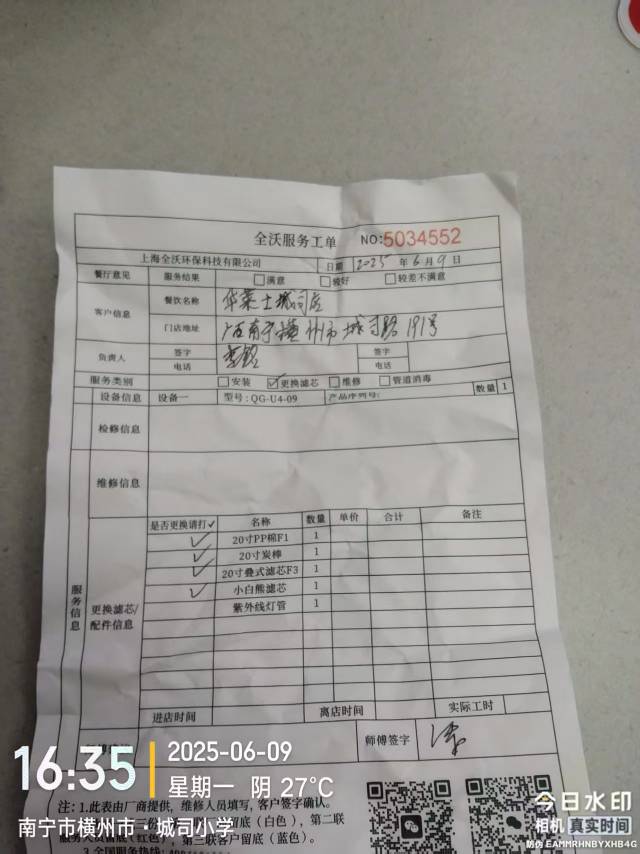 全沃服务工单 NO:5034552
上海全沃环保科技有限公司 日期 2025 年 6 月 9 日
餐厅意见 服务结果 满意 较好 较差不满意
客户信息 餐饮名称 华莱士城司店
门店地址 广西南宁横州市城司路191号
负责人 签字 签字
电话 电话
服务类别 安装 ✓更换滤芯 维修 管道消毒
设备信息 设备一 型号: QG-U4-09 产品序列号: 数量 1
检修信息
维修信息
服务信息
更换滤芯/配件信息
是否更换请打✓ 名称 数量 单价 合计 备注
✓ 20寸PP棉F1 1
✓ 20寸炭棒 1
✓ 20寸叠式滤芯F3 1
✓ 小白熊滤芯 1
紫外线灯管 1
进店时间 离店时间 实际工时
师傅签字
注: 1.此表由厂商提供, 维修人员填写, 客户签字确认。
底（白色）, 第二联
留底（红色）, 第三联客户留底（蓝色）。
3.全国服务热线:
16:35
2025-06-09
星期一 阴 27°C
南宁市横州市·城司小学
今日水印
相机 真实时间
防伪 EAMMRHNBYXHB4G